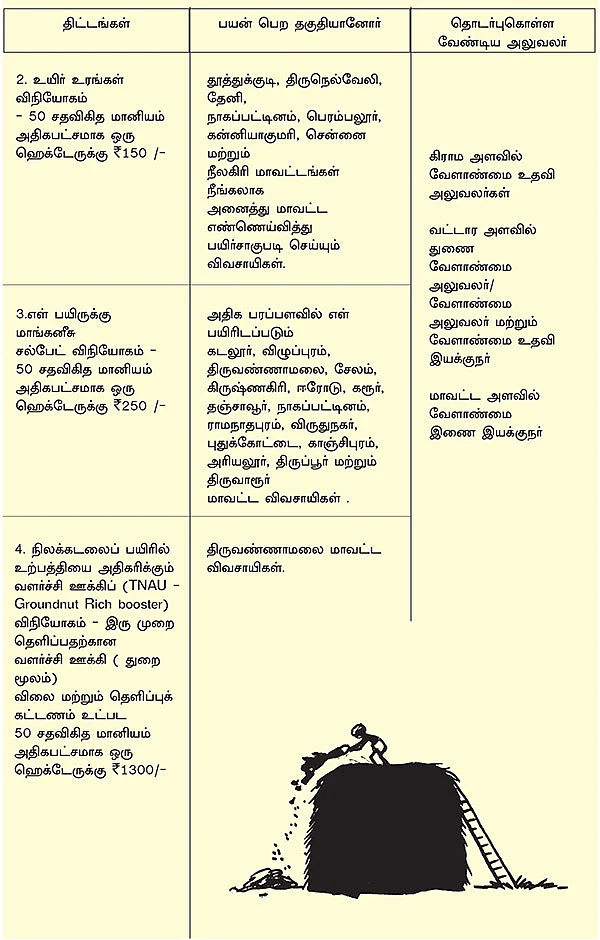 திட்டங்கள்
பயன் பெற தகுதியானோர்
தொடர்புகொள்ள
வேண்டிய அலுவலர்
2. உயிர் உரங்கள்
விநியோகம்
- 50 சதவிகித மானியம்
அதிகபட்சமாக ஒரு
ஹெக்டேருக்கு ₹150 /-
தூத்துக்குடி, திருநெல்வேலி,
தேனி,
நாகப்பட்டினம், பெரம்பலூர்,
கன்னியாகுமரி, சென்னை
மற்றும்
நீலகிரி மாவட்டங்கள்
நீங்கலாக
அனைத்து மாவட்ட
எண்ணெய்வித்து
பயிர்சாகுபடி செய்யும்
விவசாயிகள்.
கிராம அளவில்
வேளாண்மை உதவி
அலுவலர்கள்
வட்டார அளவில்
துணை
வேளாண்மை
அலுவலர்/
வேளாண்மை
அலுவலர் மற்றும்
வேளாண்மை உதவி
இயக்குநர்
மாவட்ட அளவில்
வேளாண்மை
இணை இயக்குநர்
3.எள் பயிருக்கு
மாங்கனீசு
சல்பேட் விநியோகம் -
50 சதவிகித மானியம்
அதிகபட்சமாக ஒரு
ஹெக்டேருக்கு ₹250 /-
அதிக பரப்பளவில் எள்
பயிரிடப்படும்
கடலூர், விழுப்புரம்,
திருவண்ணாமலை, சேலம்,
கிருஷ்ணகிரி, ஈரோடு, கரூர்,
தஞ்சாவூர், நாகப்பட்டினம்,
ராமநாதபுரம், விருதுநகர்,
புதுக்கோட்டை, காஞ்சிபுரம்,
அரியலூர், திருப்பூர் மற்றும்
திருவாரூர்
மாவட்ட விவசாயிகள் .
4. நிலக்கடலைப் பயிரில்
உற்பத்தியை அதிகரிக்கும்
வளர்ச்சி ஊக்கிப் (TNAU -
Groundnut Rich booster)
விநியோகம் - இரு முறை
தெளிப்பதற்கான
வளர்ச்சி ஊக்கி ( துறை
மூலம்)
விலை மற்றும் தெளிப்புக்
கட்டணம் உட்பட
50 சதவிகித மானியம்
அதிகபட்சமாக ஒரு
ஹெக்டேருக்கு ₹1300/-
திருவண்ணாமலை மாவட்ட
விவசாயிகள்.